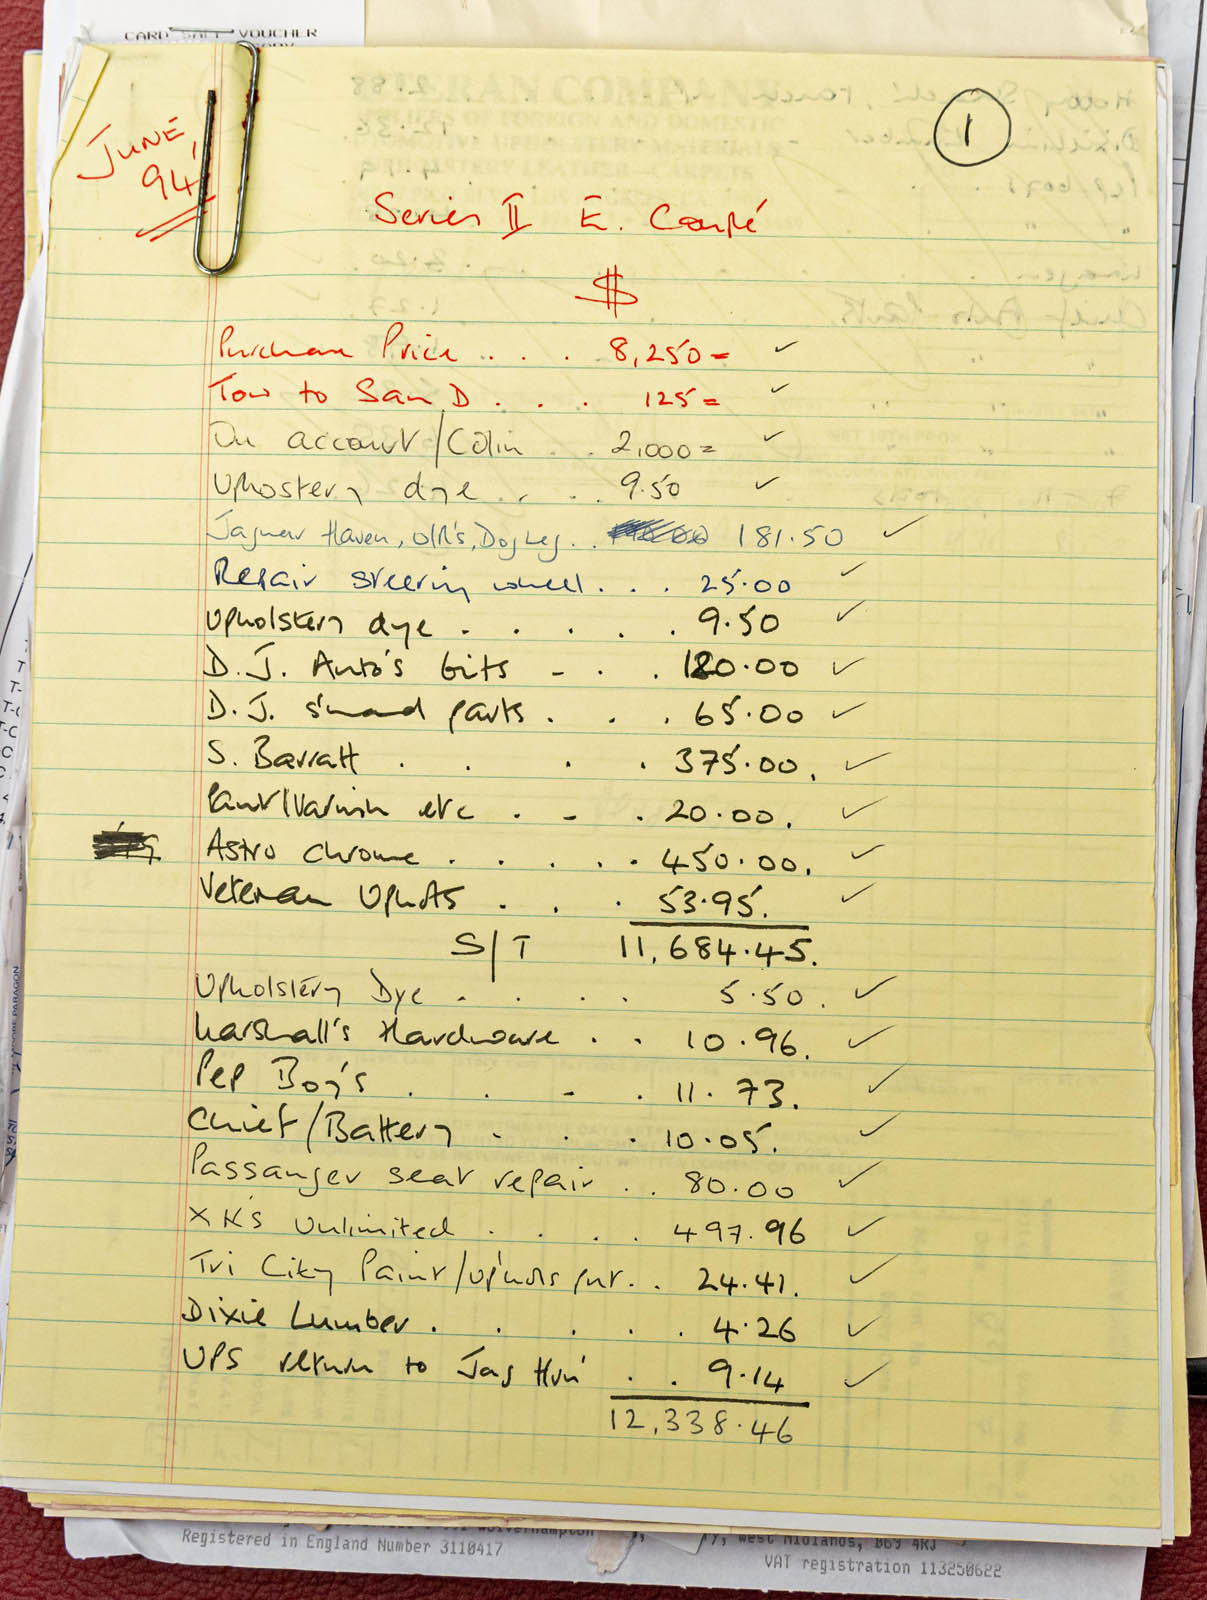 CARD SALE VOUCHER
JUNE,
94'
1
Series II E. Coupé
$
Purchase Price . . . 8,250= ✓
Tow to San D . . . 125= ✓
On account/Colin . . 2,000= ✓
Uphostery dye . . . 9.50 ✓
Jaguar Haven, O/R's, Dog Leg . . 181.50 ✓
Repair steering wheel . . . 25.00 ✓
Upholstery dye . . . . . 9.50 ✓
D.J. Auto's bits - . . 120.00 ✓
D.J. s'hand parts . . . 65.00 ✓
S. Barratt . . . . 375.00. ✓
Paint/Varnish etc . - . 20.00. ✓
Astro chrome . . . . . 450.00. ✓
Veteran Uphols . . . 53.95. ✓
S/T 11,684.45.
Upholstery Dye . . . . 5.50. ✓
Marshall's Hardware . . 10.96. ✓
Pep Boy's . . - . 11.73. ✓
Chief/Battery . . . . 10.05. ✓
Passanger seat repair . . 80.00 ✓
XK's Unlimited . . . . 497.96 ✓
Tri City Paint/up'hols pnt . . 24.41. ✓
Dixie Lumber . . . . . . 4.26 ✓
UPS return to Jag Hvn' . . 9.14 ✓
12,338.46
Wolverhampton, West Midlands, B69 4RJ
Registered in England Number 3110417
VAT registration 113250622